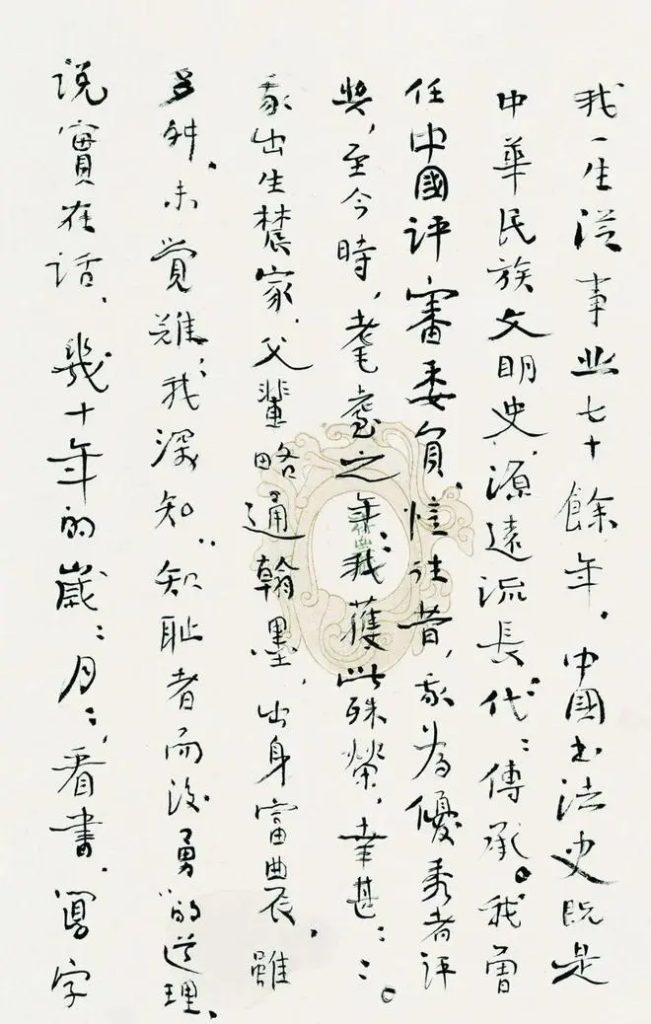 我一生從事业七十餘年，中國书法史既是
中華民族文明史，源遠流長，代〻傳承。我曾
任中國评審委員，憶往昔，我為優秀者評
獎，至今時，耄耋之年，我獲此殊榮，幸甚〻〻。
我出生農家，父輩略通翰墨，出身富農，雖
多舛，未覺難，我深知“知耻者而後勇”的道理，
说實在话，幾十年的歲〻月〻，看書，寫字